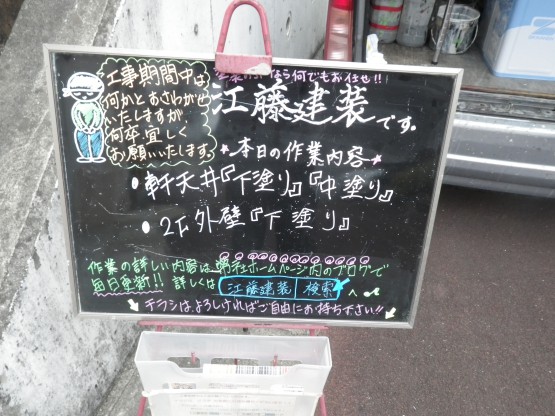 工事期間中は
何かとおさわがせ
いたしますが
何卒宜しく
お願いいたします。
なら何でもお任せ!!
江藤建装です。
本日の作業内容
・軒天井『下塗り』『中塗り』
・2F外壁『下塗り』
作業の詳しい内容は弊社ホームページ内のブログで
毎日更新!! 詳しくは 江藤建装 検索 へ
チラシは、よろしければご自由にお持ち下さい!!